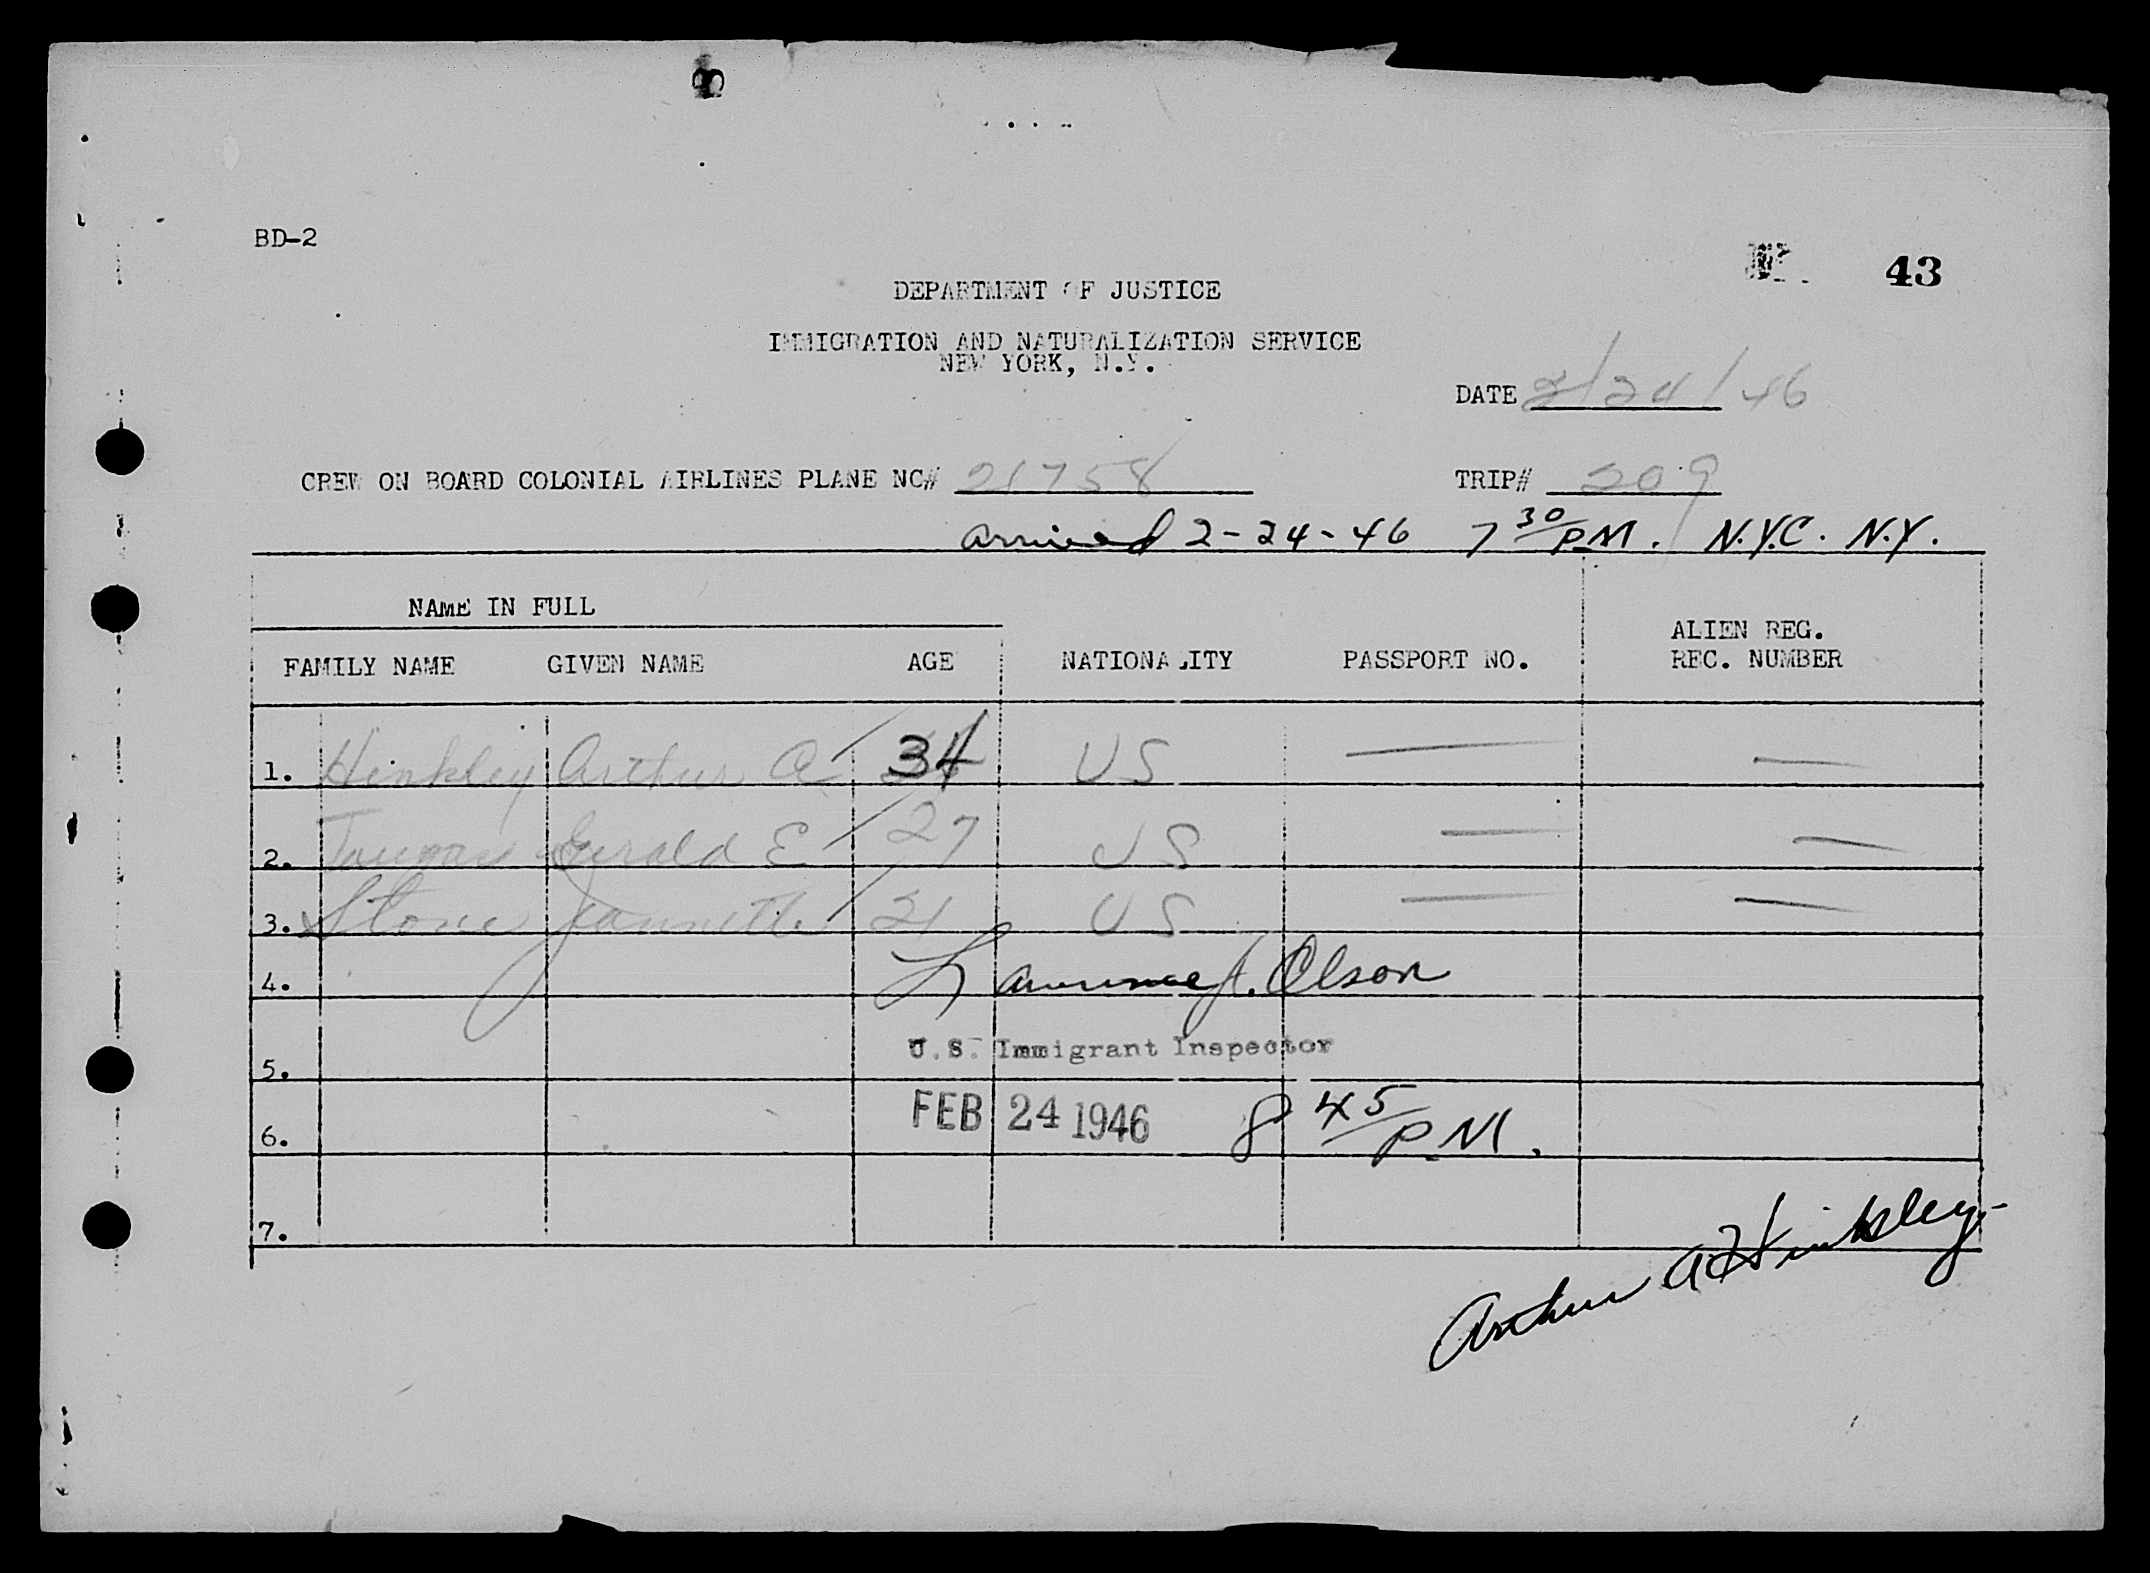 BD-2
43
DEPARTMENT OF JUSTICE
IMMIGRATION AND NATURALIZATION SERVICE
NEW YORK, N.Y.
DATE 2/24/46
CREW ON BOARD COLONIAL AIRLINES PLANE NC# 21758 TRIP# 209
arrived 2-24-46 7 30/PM. N.Y.C. N.Y.
NAME IN FULL
ALIEN REG.
FAMILY NAME GIVEN NAME AGE NATIONALITY PASSPORT NO. REC. NUMBER
1. Hinkley Arthur A 34 US — —
2. Gerald E 27 US — —
3. Stone Jannette 21 US — —
4. Lawrence J. Olson
U.S. Immigrant Inspector
5.
FEB 24 1946 8 45/P.M.
6.
7.
Arthur A Hinkley